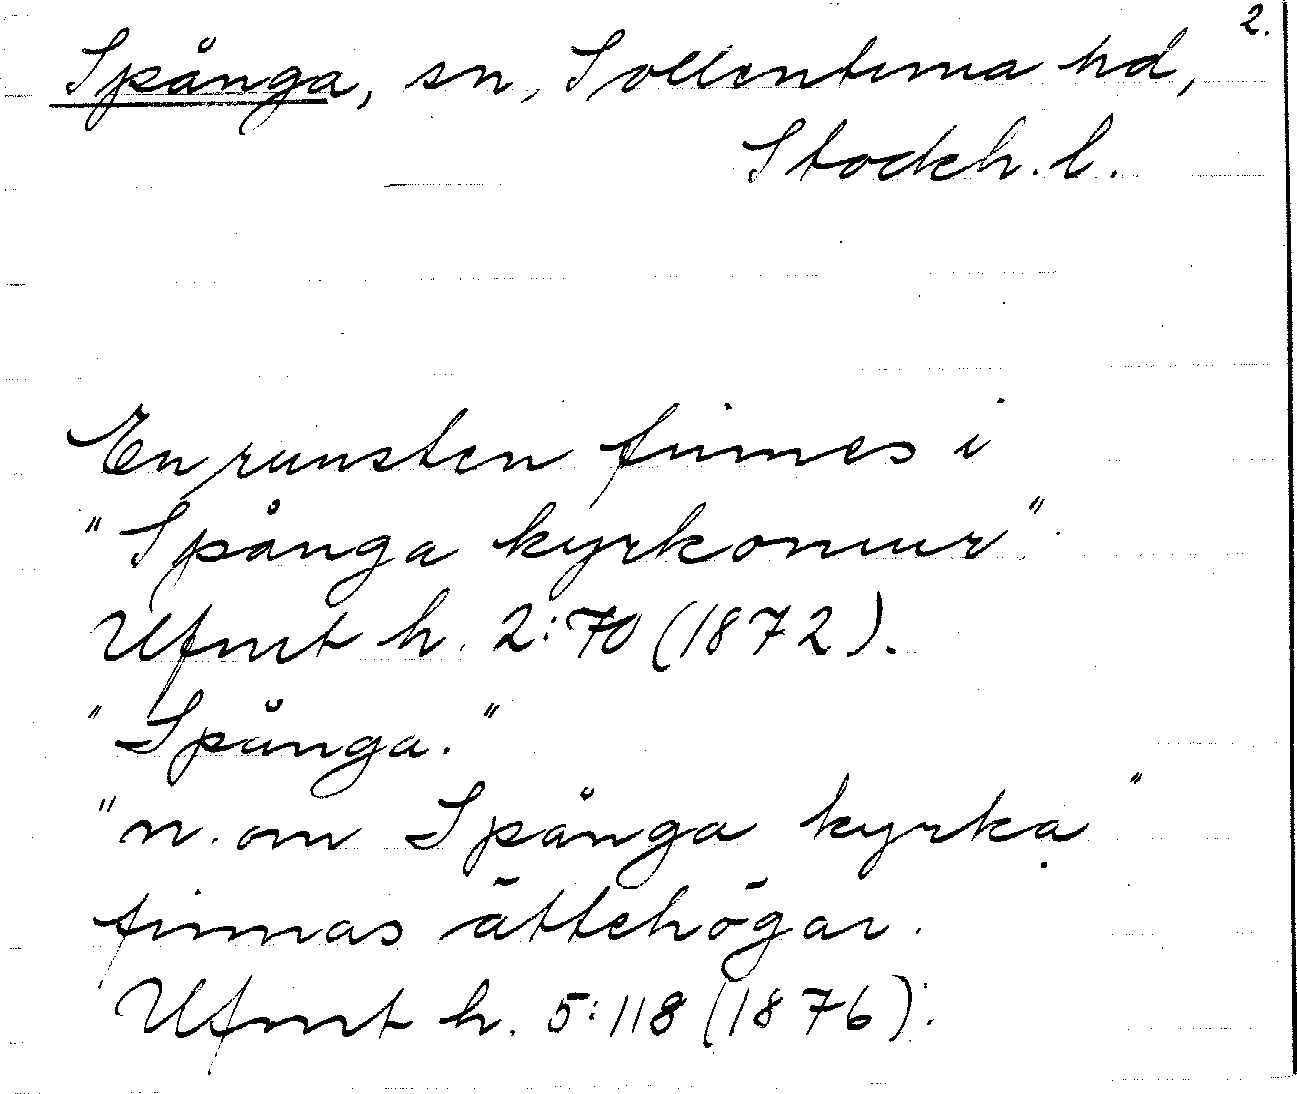 2.
Spånga, sn, Sollentuna hd,
Stockh. l.
En runsten finnes i
"Spånga kyrkomur"
Ufmt h. 2:70 (1872).
"Spånga."
"n. om Spånga kyrka"
finnas ättehögar.
Ufmt h. 5:118 (1876).